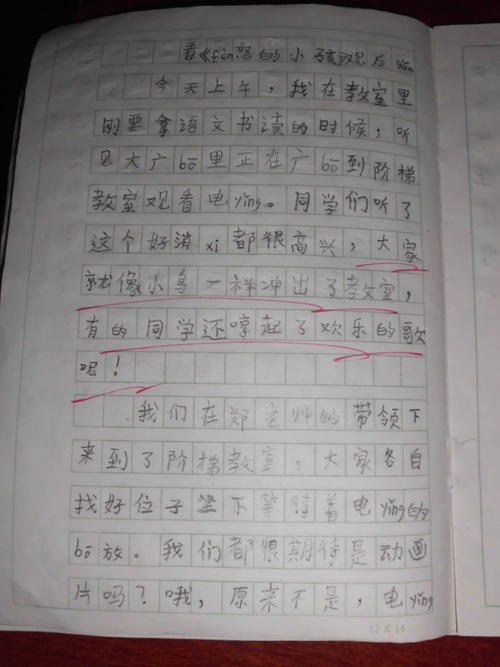 看《fèn怒的小孩》观后gǎn
今天上午，我在教室里
刚要拿语文书读的时候，听
见大广bō里正在广bō到阶梯
教室观看电yǐng。同学们听了
这个好消xi都很高兴，大家
就像小鸟一样冲出了教室，
有的同学还哼起了欢乐的歌
呢！
我们在郑老师的带领下
来到了阶梯教室，大家各自
找好位子坐下等待着电yǐng的
bō放。我们都很期待是动画
片吗？哦，原来不是，电yǐng
12×14